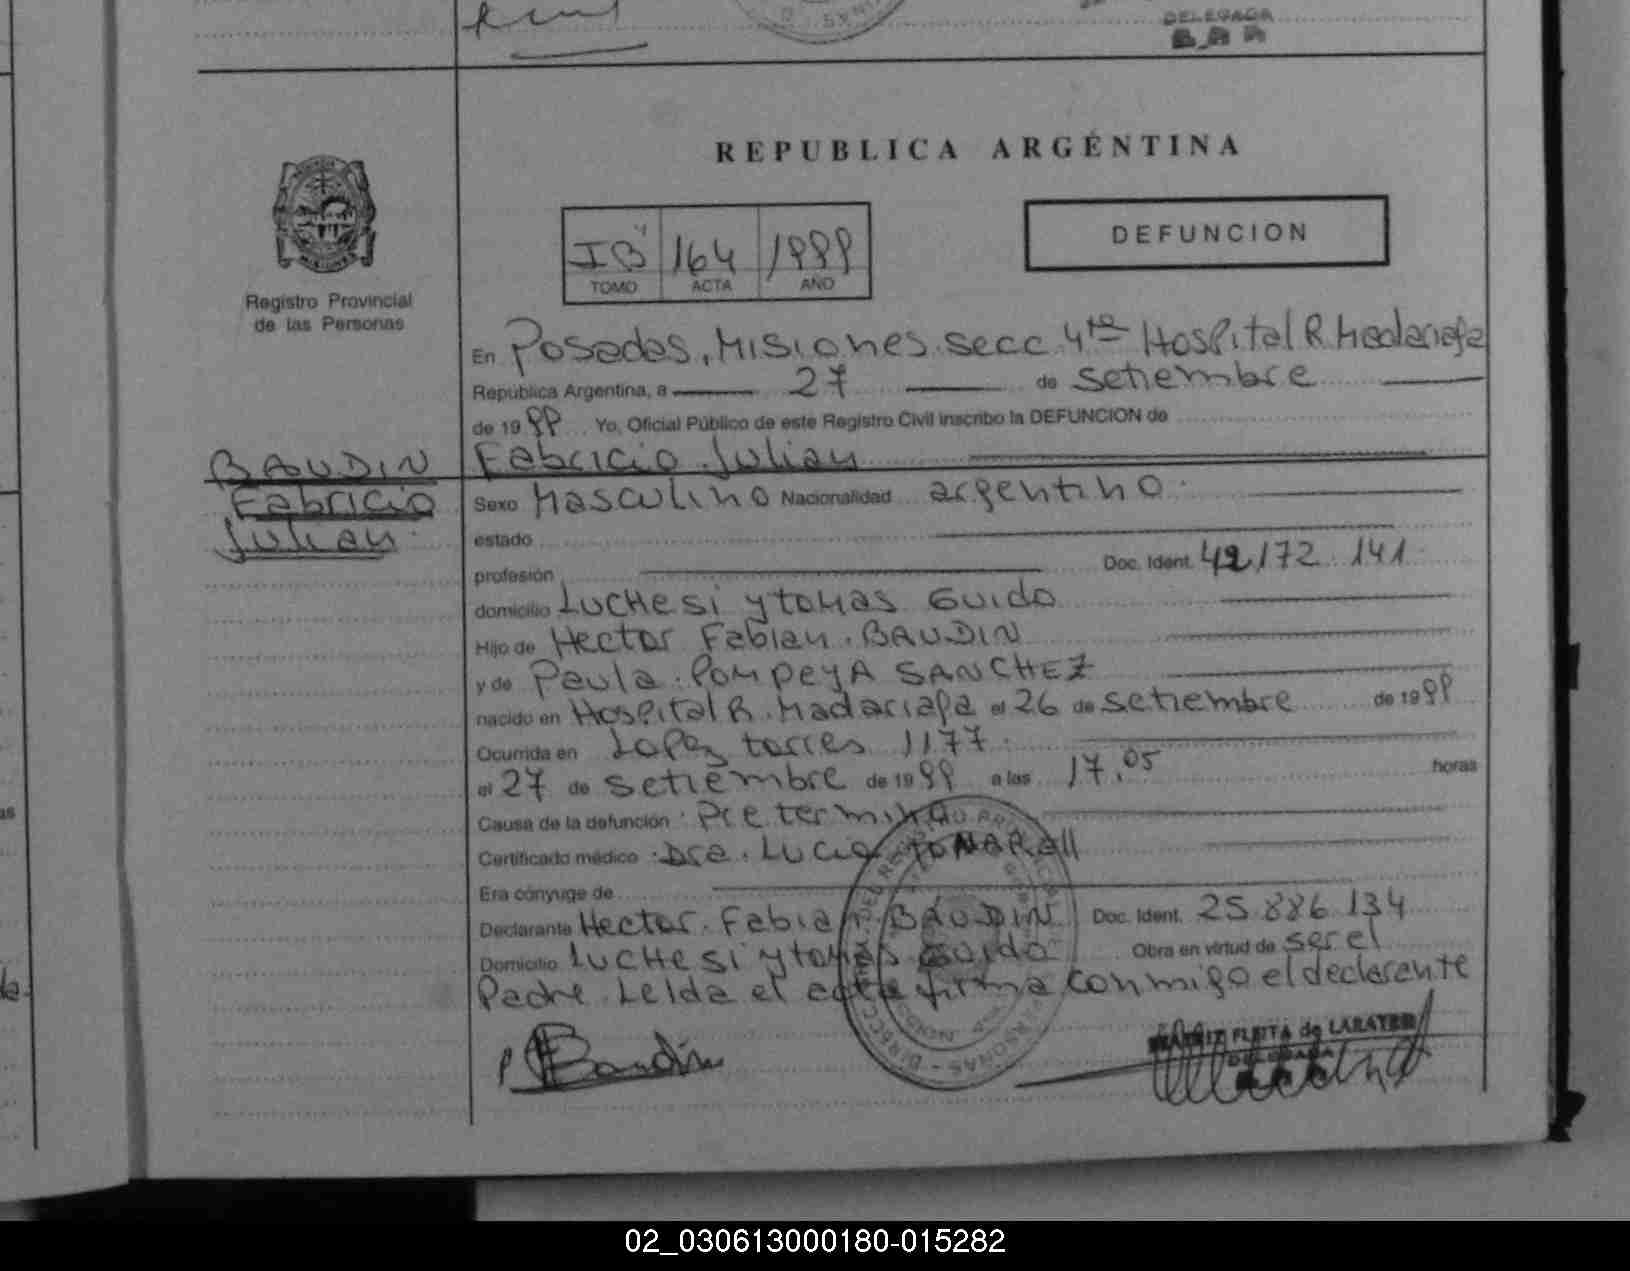 DELEGADA
REPUBLICA ARGENTINA
IB" 164 1999
TOMO ACTA AÑO
DEFUNCION
Registro Provincial
de las Personas
En Posadas, Misiones. secc 4ta Hospital R. Madariaga
República Argentina, a 27 de setiembre
de 1999 Yo, Oficial Público de este Registro Civil inscribo la DEFUNCION de
BAUDIN Fabricio Julian
Fabricio
Julian
Sexo Masculino Nacionalidad argentino
estado
profesión Doc. Ident. 42.172.141
domicilio LUCHesi y tomas Guido
Hijo de Hector Fabian. BAUDIN
y de Paula. POMPEYA SANCHEZ
nacido en Hospital R. Madariaga el 26 de setiembre de 1999
Ocurrida en Lopez torres 1177
el 27 de setiembre de 1999 a las 17.05 horas
Causa de la defunción Pretermino
Certificado médico Dra. Lucia
Era cónyuge de
Declarante Hector. Fabian. BAUDIN Doc. Ident. 25.886.134
Domicilio LUCHesi y tomas Guido Obra en virtud de ser el
Padre. Leida el acta firma conmigo el declarante
Baudin
FLEITA de LABAYEN
DELEGADA
02_030613000180-015282